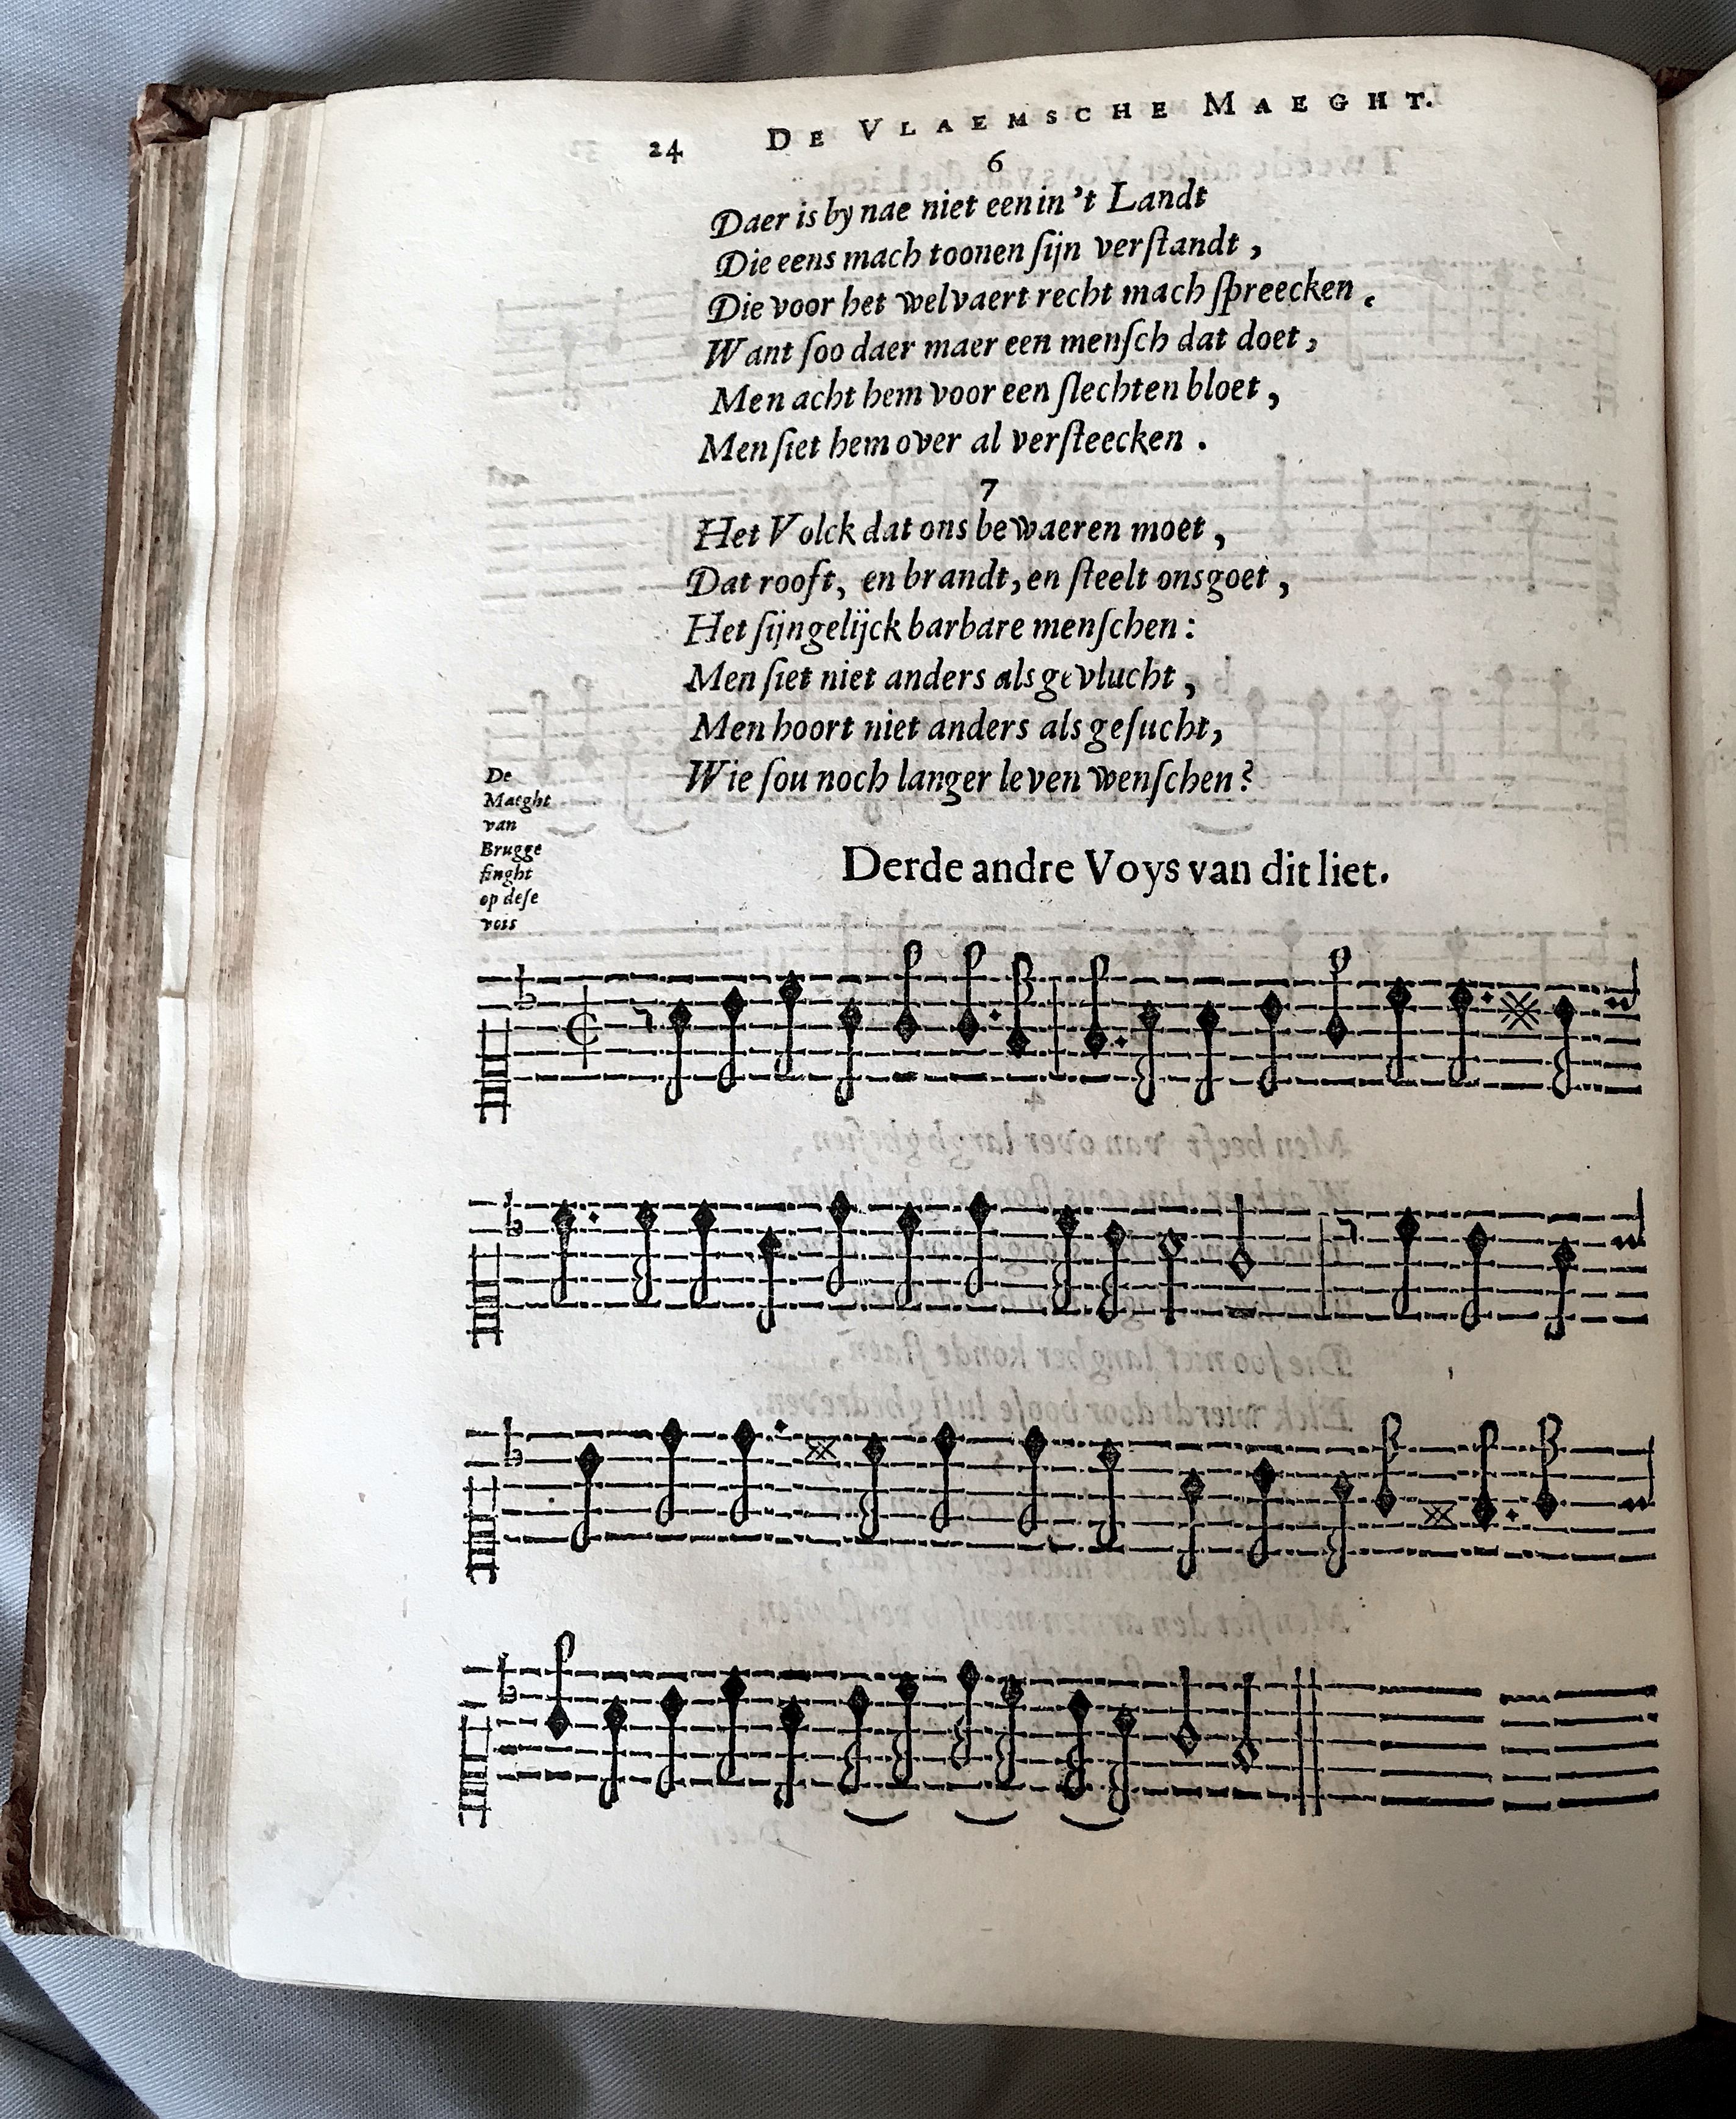 24 DE VLAEMSCHE MAEGHT.
6
Daer is by nae niet een in 't Landt
Die eens mach toonen ſijn verſtandt,
Die voor het welvaert recht mach ſpreecken.
Want ſoo daer maer een menſch dat doet,
Men acht hem voor een ſlechten bloet,
Men ſiet hem over al verſteecken.
7
Het Volck dat ons bewaeren moet,
Dat rooft, en brandt, en ſteelt ons goet,
Het ſijn gelijck barbare menſchen:
Men ſiet niet anders als gevlucht,
Men hoort niet anders als geſucht,
Wie ſou noch langer leven wenſchen?
De
Maeght
van
Brugge
ſinght
op deſe
vois
Derde andre Voys van dit liet.